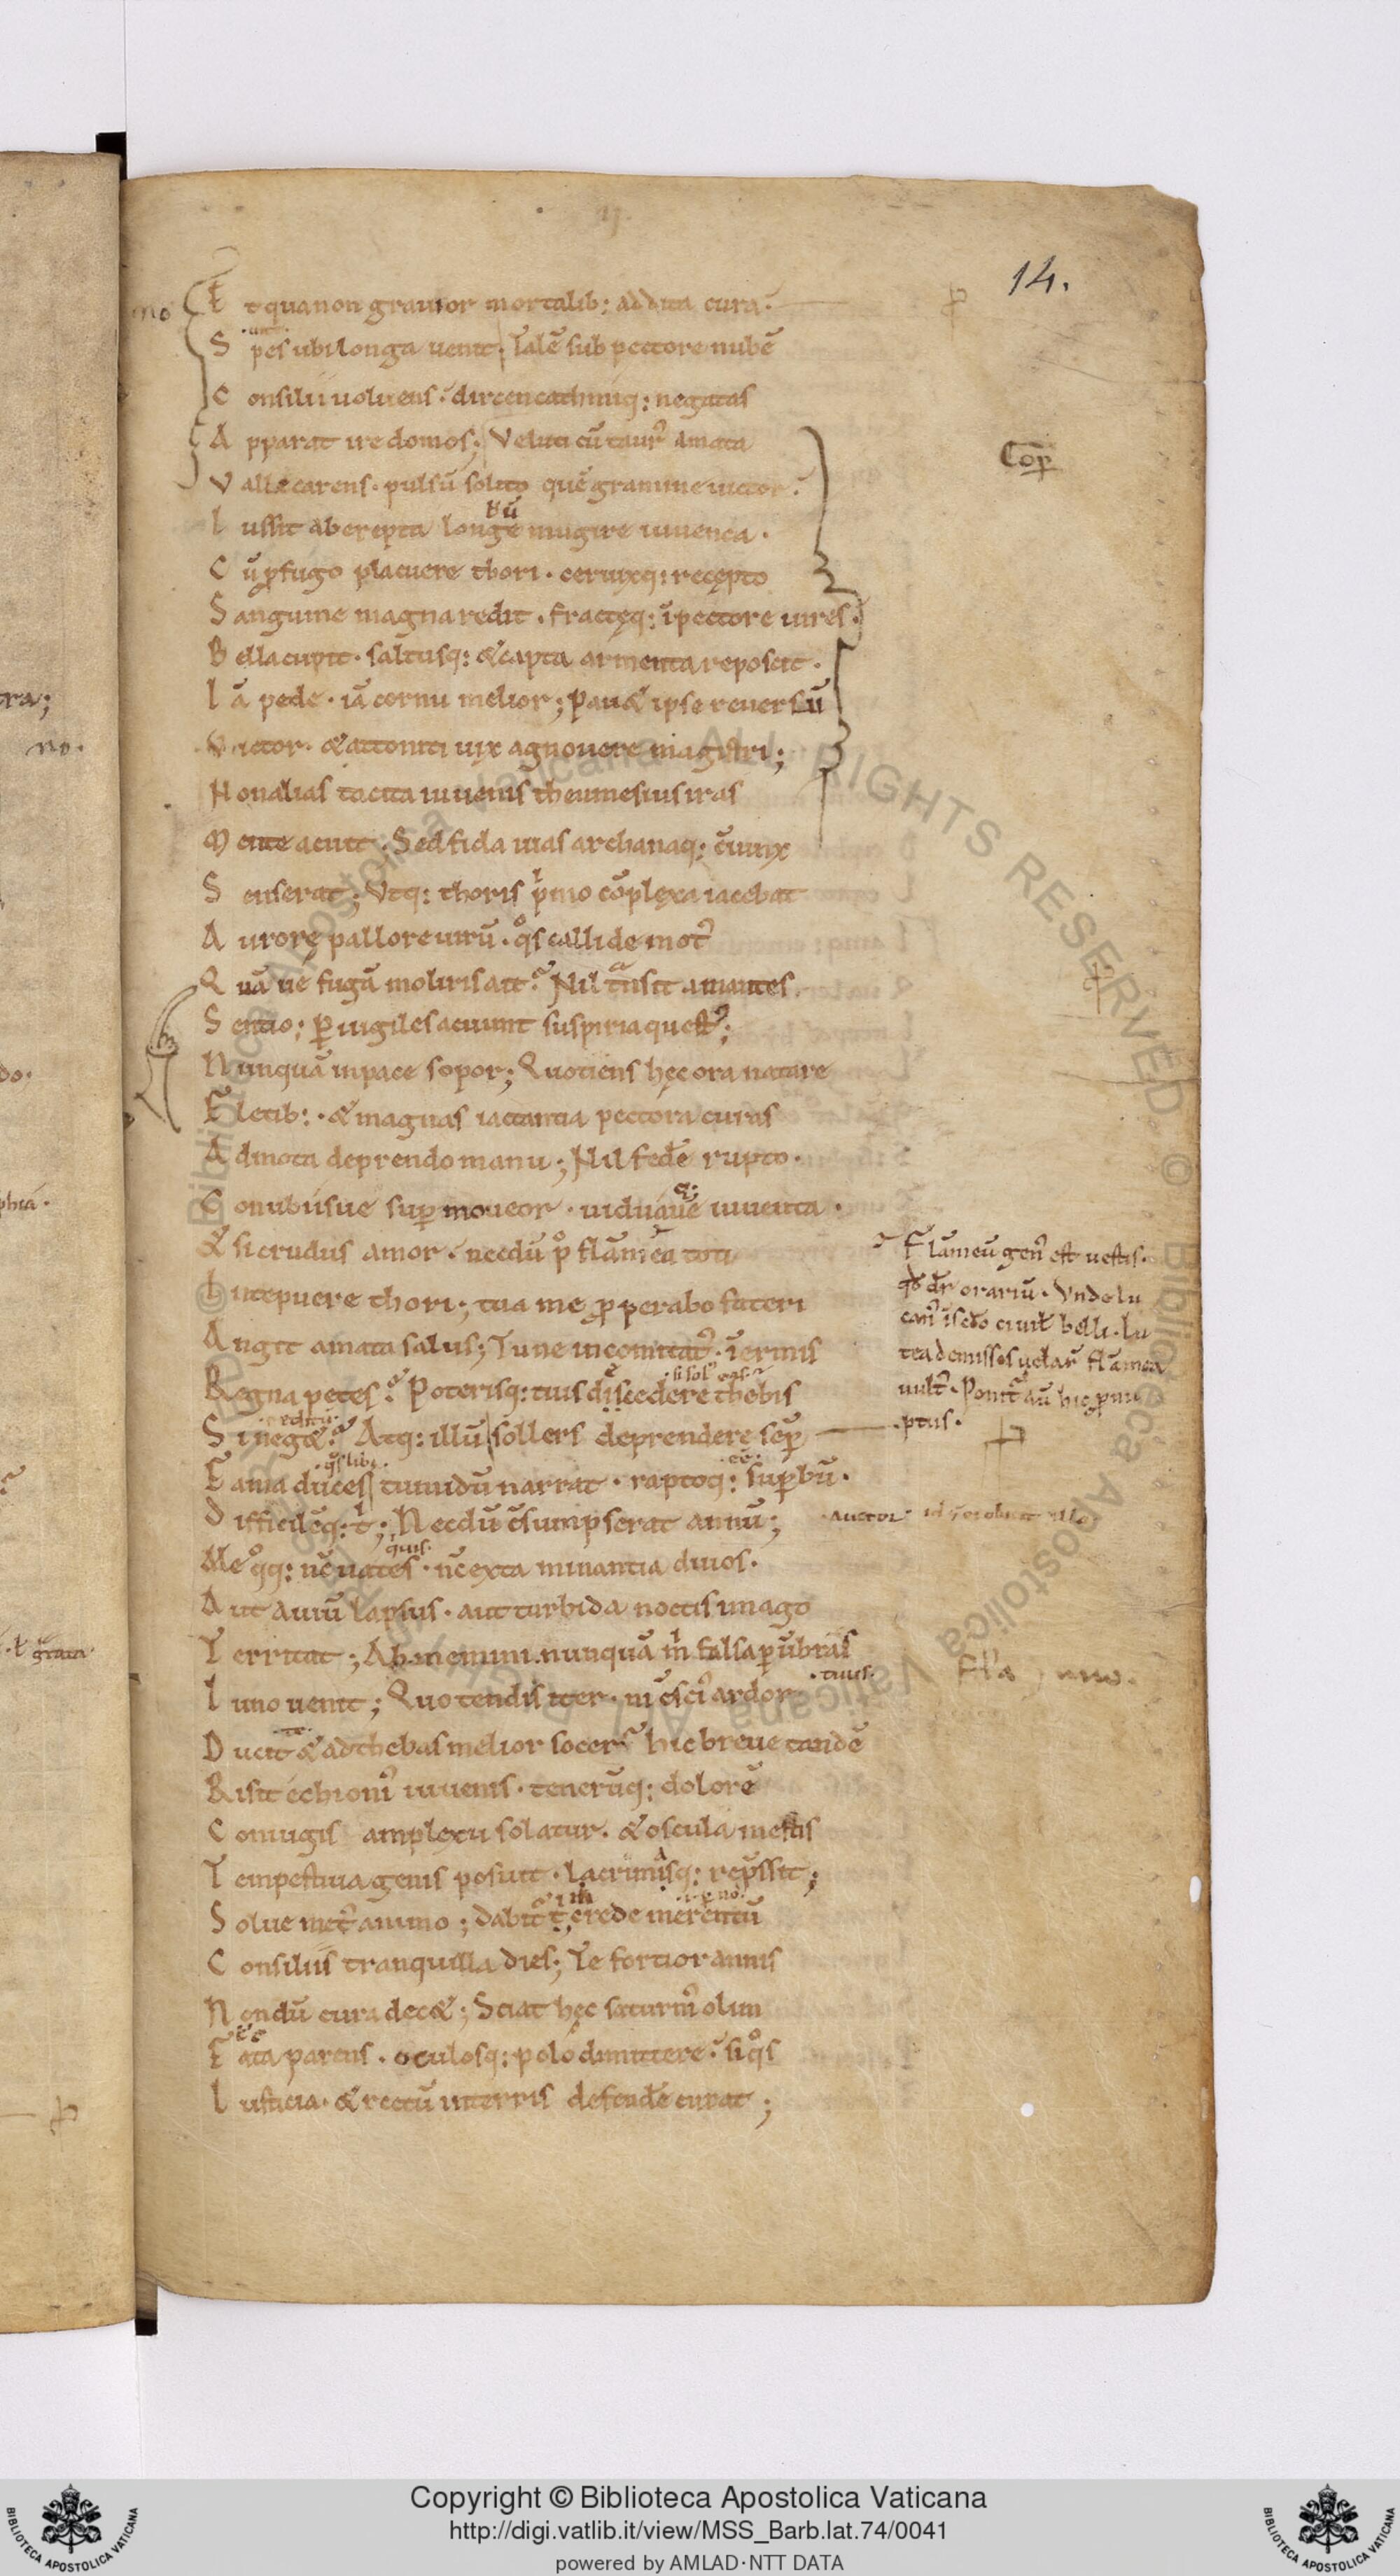 14.
E t qua non grauior mortalib; addita cura.
S pes ubi longa uenit. Talē sub pectore nubē
C onsilii uoluens. dircen cathmiq; negatas
A pparat ire domos; Veluti cū taurꝰ amata
V alle carens. pulsū solito quē gramine uictor.
I ussit ab erepta longe mugire iuuenca.
C ū ꝓfugo placuere thori. ceruixq; recępto
S anguine magna redit. fractęq; ī pectore uires.
B ella cupit. saltusq; & capta armenta reposcit.
I ā pede. iā cornu melior; pau& ipse reuersū
V ictor. & attoniti uix agnouere magistri;
N on alias tacita iuuenis theumesius iras
M ente acuit. Sed fida uias archanaq; c̄iunx
S enserat; Vtq; thoris pͥmo cōplexa iacebat
A urorę pallore uirū. qͦs callide motꝰ
Q uā ue fugā moliris ait? Nil tͣnsit amantes.
S entio; ꝑuigiles acuunt suspiria quest;
N unquā in pace sopor; Quotiens hęc ora natare
F letib;. & magnas iactantia pectora curas
A dmota deprendo manu; Nil fedē rupto.
C onubiisue suꝑ moueor. uiduaue iuuenta.
& si crudus amor. necdū pͦ flamea toti
I ntepuere thori; tua me ꝓperabo fateri
A ngit amata salus; Tune incomitatꝰ. īermis
R egna petes? Poterisq; tuis discedere thebis
S i neg&? Atq; illū sollers deprendere seꝑ
F ama duces tumidū narrat. raptoq; suꝑbū.
D ifficilēq; tͥ; Necdū c̄sumpserat annū;
Me qͦq; nc̄ uates. nc̄ exta minantia diuos.
A ut auiū lapsus. aut turbida noctis imago
T erritat; Ah memini nunquā mͥ falsa ꝑ ūbras
I uno uenit; Quo tendis iter. ni c̄sciꝰ ardor
D ucit & ad thebas melior socer? hic breue tandē
R isit echioniꝰ iuuenis. tenerūq; dolorē
C oniugis amplexu solatur. & oscula mestis
T empestiua genis posuit. lacrimasq; rep̄ssit;
S olue metꝰ animo; dabit crede merentū
C onsiliis tranquilla dies; Te fortior annis
N ondū cura dec&; Sciat hęc saturniꝰ olim
F ata parens. oculosq; polo dimittere? si qͦs
I usticia. & rectū in terris defendē curat;
Cop̄
Flameū genꝰ est uestis.
qd̄ dr̄ orariū. Vnde lu
canꝰ ī scd̄o ciuil belli. lu
tea demissos uelar̄ flamea
uultꝰ. Ponit̄ aū hic ꝓ nu
ptus.
Copyright © Biblioteca Apostolica Vaticana
http://digi.vatlib.it/view/MSS_Barb.lat.74/0041
powered by AMLAD·NTT DATA